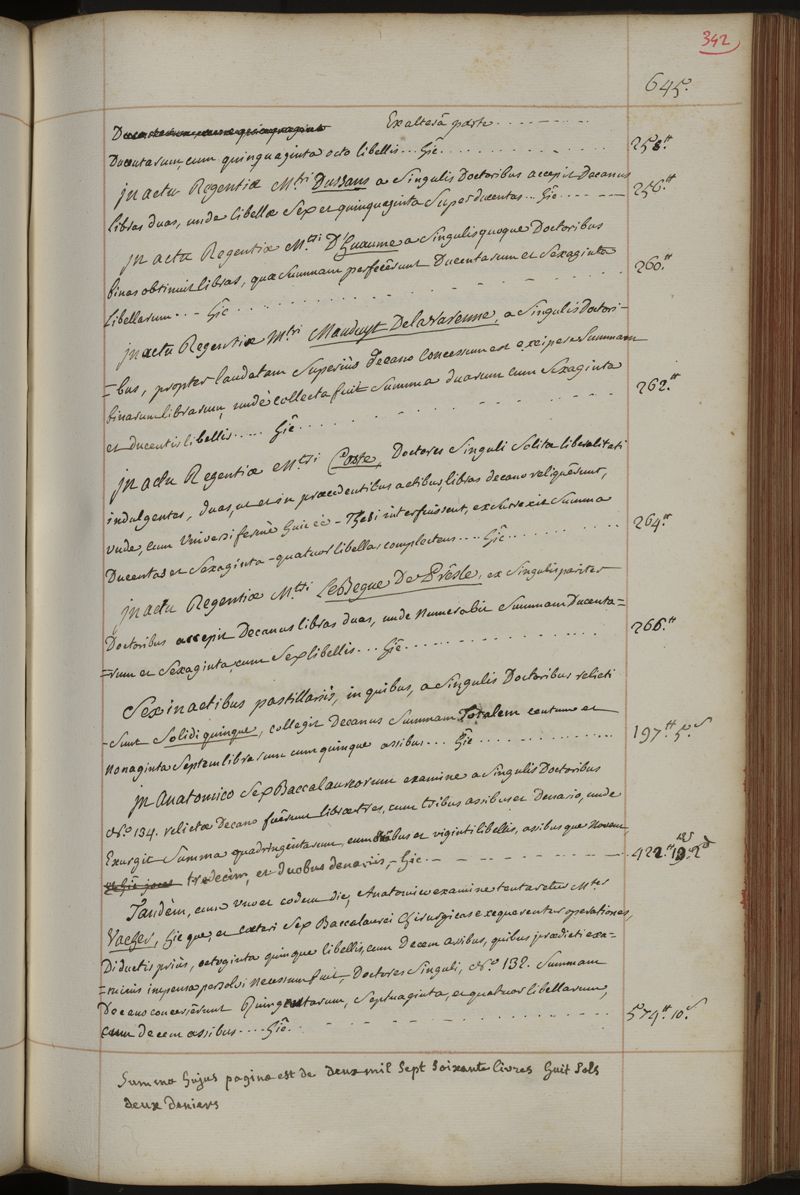 342
645.
Ex alterâ parte
Ducentarum, cum quinquaginta octo libellis... hîc 258.tt
Jn actu Regentiæ Mtri Dussans a Singulis Doctoribus accepit Decanus
libras duas, unde libellæ Sex et quinquaginta Super ducentas... hîc 256.tt
Jn actu Regentiæ M.tri D'huaume a Singulis quoque Doctoribus
binas obtinuit libras, quæ Summam perfecêrunt Ducentarum et Sexaginta
libellarum... hîc 260.tt
Jn actu Regentiæ M.tri Mauduyt Delavarenne, a Singulis Doctori-
=bus, propter laudatam Superiùs Decano Concessum est excipere Summam
binarum librarum, undè collecta fuit Summa duarum cum Sexaginta
et ducentis libellis..... hîc 262.tt
Jn actu Regentiæ Mtri Coste, Doctores Singuli Solitæ liberalitati
indulgentes, duas, ut et in præcedentibus actibus, libras decano reliquêrunt,
unde, cum Universi fermè huicce-Thesi interfuissent, exsurrexit Summa
Ducentas et Sexaginta-quatuor libellas complectens.... hîc 264.tt
Jn actu Regentiæ Mtri LeBegue De Presle, ex Singulis pariter
Doctoribus accepit Decanus libras duas, unde Numerabis Summam Ducenta=
=rum et Sexaginta, cum Sex libellis... hîc 266.tt
Sex in actibus pastillariis, in quibus, a Singulis Doctoribus relicti
-Sunt Solidi quinque, collegit Decanus Summam Totalem centum et
nonaginta Septem librarum cum quinque assibus... hîc 197.tt 5.s
Jn Anatomico Sex Baccalaureorum examine a Singulis Doctoribus
N.o 134. relictæ Decano fuêrunt libræ tres, cum tribus assibus et Denario, unde
Exurgit Summa quadringentarum, cum duobus et viginti libellis, assibus que
tredecim, et duobus denariis, hîc 422.tt 2.d
Tandèm, cum uno et eodem die, Anatomico examine tentaretur Mter
Vacher, hicque, et cæteri Sex Baccalaurei Chirurgicas exequerentur operationes,
Diductis priùs, octoginta quinque libellis, cum Decem assibus, quibus prædicti exa=
=minis impensa persolvi necessum fuit, Doctores Singuli, N.o 132. Summam
Decano concessêrunt Quingentarum, Septuaginta, et quatuor libellarum,
cum decem assibus.... hîc 574.tt 10.s
Summa hujus paginæ est de deux mil Sept Soixante livres huit Sols
deux deniers